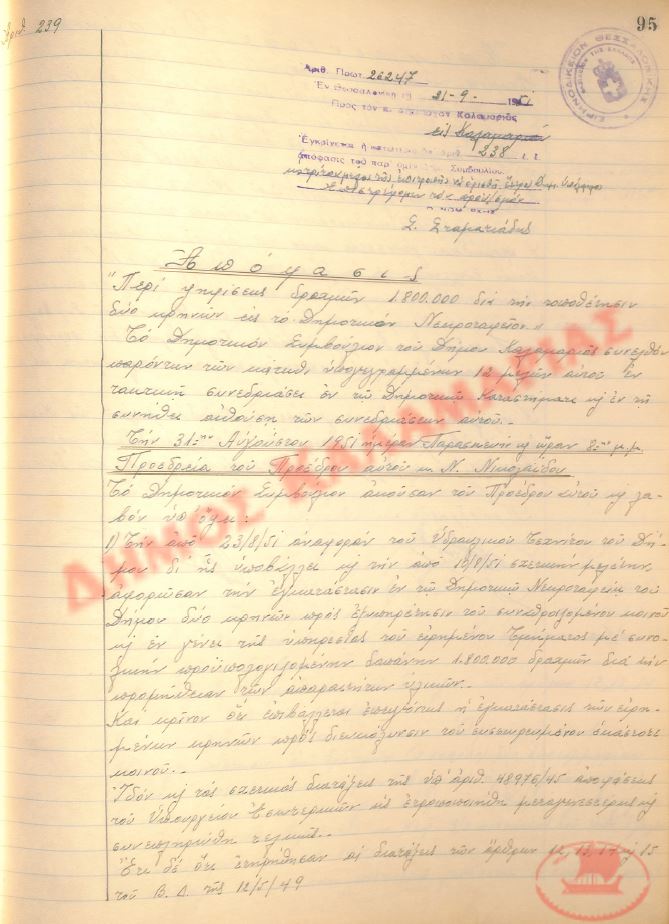 Αριθ. 239
95
Αριθ. Πρωτ. 26247
Ἐν Θεσσαλονίκῃ 21-9-1951
Πρὸς τὸν κ. Δήμαρχον Καλαμαριᾶς
εἰς Καλαμαριὰν
Ἐγκρίνεται ἡ ἀριθ. 238 ἐ. ἔ.
ἀπόφασις τοῦ παρ' ὑμῖν Συμβουλίου.
Σ. Σταματιάδης
ΕΙΡΗΝΟΔΙΚΕΙΟΝ ΘΕΣΣΑΛΟΝΙΚΗΣ
Ἀπόφασις
"Περὶ ψηφίσεως δραχμῶν 1.800.000 διὰ τὴν τοποθέτησιν
δύο κρηνῶν εἰς τὸ Δημοτικὸν Νεκροταφεῖον"
Τὸ Δημοτικὸν Συμβούλιον τοῦ Δήμου Καλαμαριᾶς συνελθὸν
παρόντων τῶν κάτωθι ὑπογεγραμμένων 12 μελῶν αὐτοῦ ἐν
τακτικῇ συνεδριάσει ἐν τῷ Δημοτικῷ Καταστήματι κ ἐν τῇ
συνήθει αἰθούσῃ τῶν συνεδριάσεων αὐτοῦ.-
Τὴν 31-ην Αὐγούστου 1951 ἡμέραν Παρασκευὴν κ ὥραν 8-ην μ.μ.
Προεδρείᾳ τοῦ Προέδρου αὐτοῦ κ. Ν. Νικολαΐδου
Τὸ Δημοτικὸν Συμβούλιον ἀκοῦσαν τοῦ Προέδρου αὐτοῦ κ λα-
βὸν ὑπ' ὄψει:
1) Τὴν ἀπὸ 23/8/51 ἀναφορὰν τοῦ Ὑδραυλικοῦ Τεχνίτου τοῦ Δή-
μου δι' ἧς ὑποβάλλει κ τὴν ἀπὸ 10/8/51 σχετικὴν μελέτην
ἀφορῶσαν τὴν ἐγκατάστασιν ἐν τῷ Δημοτικῷ Νεκροταφείῳ τοῦ
Δήμου δύο κρηνῶν πρὸς ἐξυπηρέτησιν τοῦ συναθροιζομένου κοινοῦ
κ ἐν γένει τῆς ὑπηρεσίας τοῦ εἰρημένου Τμήματος μὲ συνο-
λικὴν προϋπολογιζομένην δαπάνην 1.800.000 δραχμῶν διὰ τὴν
προμήθειαν τῶν ἀπαραιτήτων ὑλικῶν.-
Καὶ κρῖνον ὅτι ἐπιβάλλεται ἐπειγόντως ἡ ἐγκατάστασις τῶν εἰρη-
μένων κρηνῶν πρὸς διευκόλυνσιν τοῦ ἑκάστοτε
κοινοῦ.-
Ἰδὸν κ τὰς σχετικὰς διατάξεις τῆς ὑπ' ἀριθ. 48976/45 ἀποφάσεως
τοῦ Ὑπουργείου Ἐσωτερικῶν ὡς ἐτροποποιήθη μεταγενεστέρως κ
συνεπληρώθη τελικῶς.-
Ἔτι δὲ ὅτι ἐτηρήθησαν αἱ διατάξεις τῶν ἄρθρων 13, 14 κ 15
τοῦ Β.Δ. τῆς 12/5/49
ΔΗΜΟΣ ΚΑΛΑΜΑΡΙΑΣ